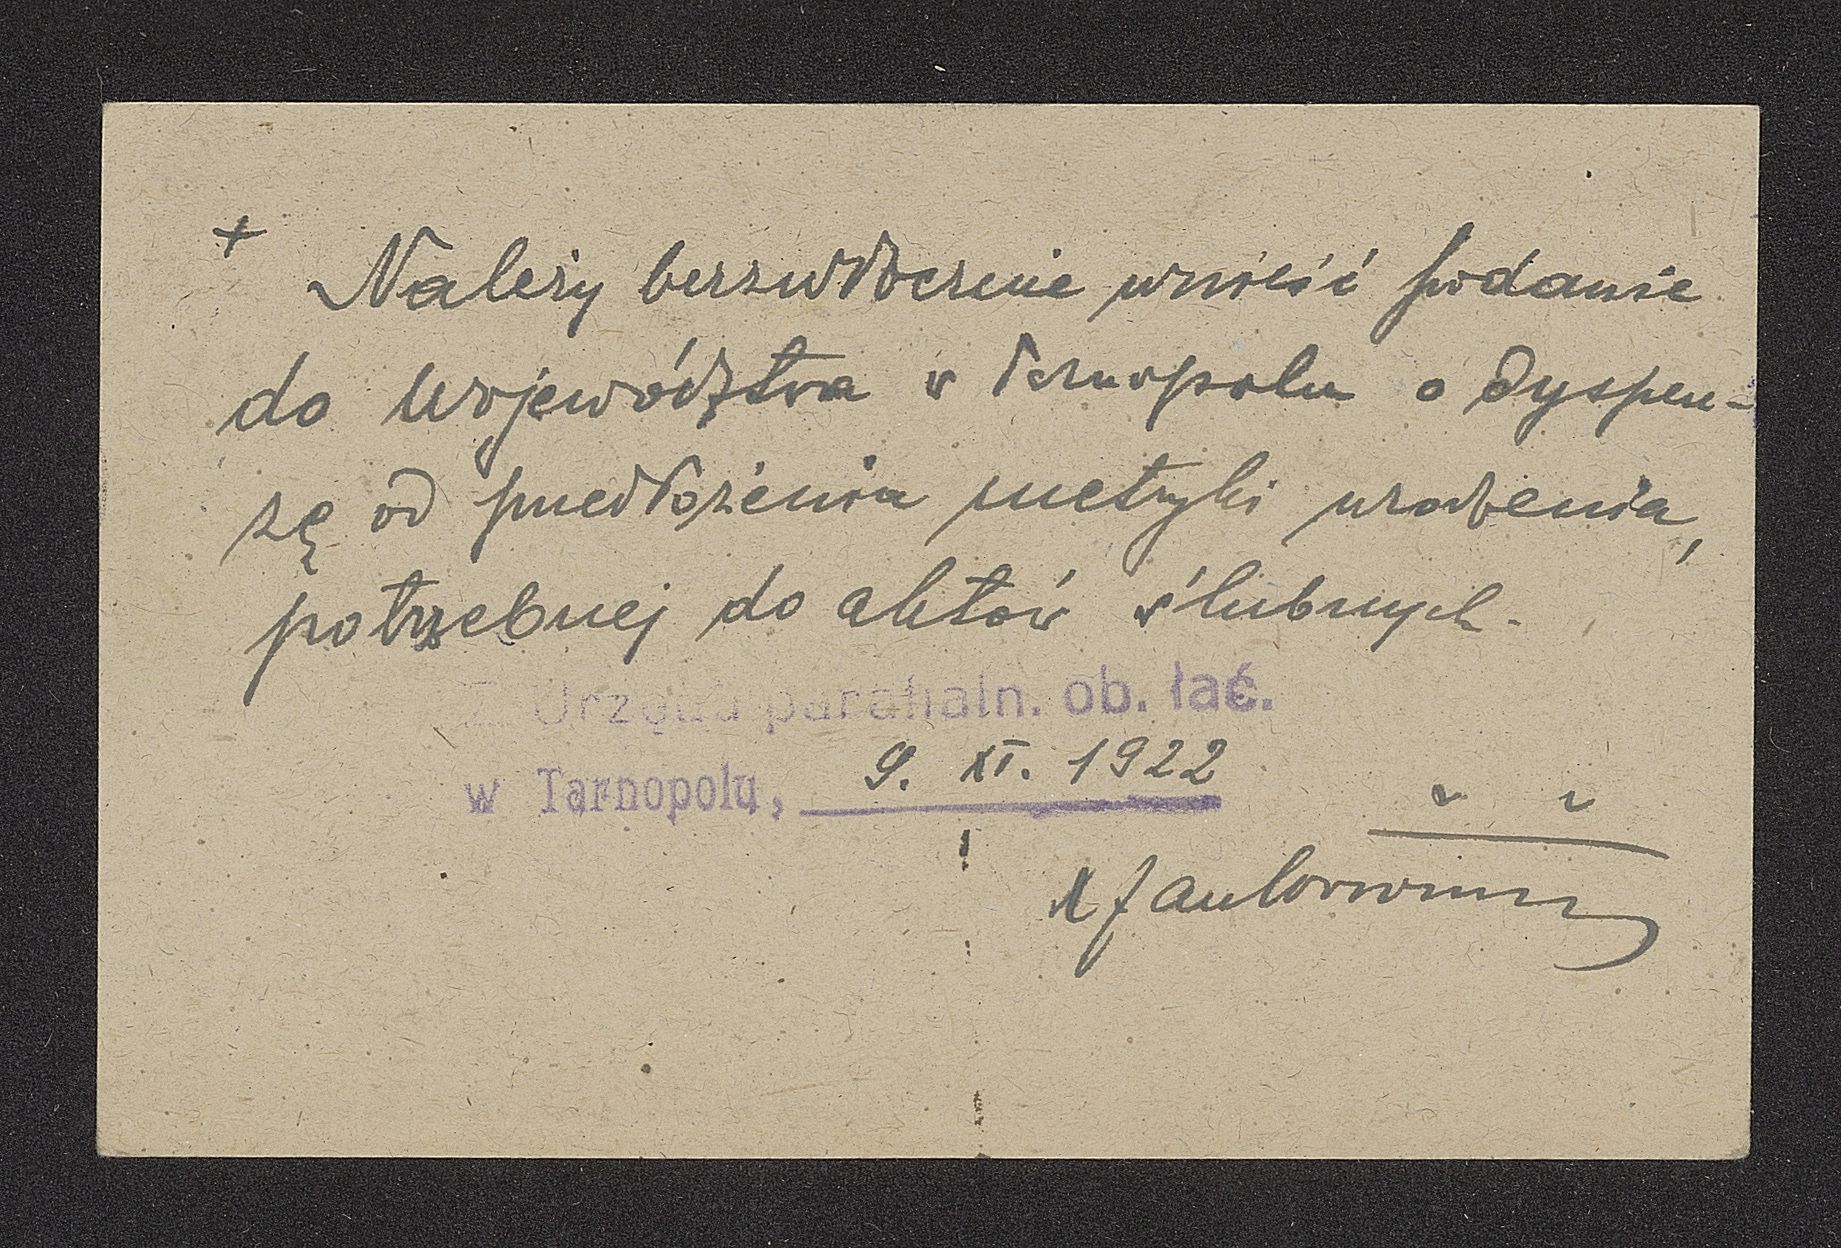 + Należy bezzwłocznie wnieść podanie
do Województwa w Tarnopolu o dyspen-
zę od przedłożenia metryki urodzenia,
potrzebnej do aktów ślubnych.
Z Urzędu parafialn. ob. łać.
w Tarnopolu, 9. XI. 1922